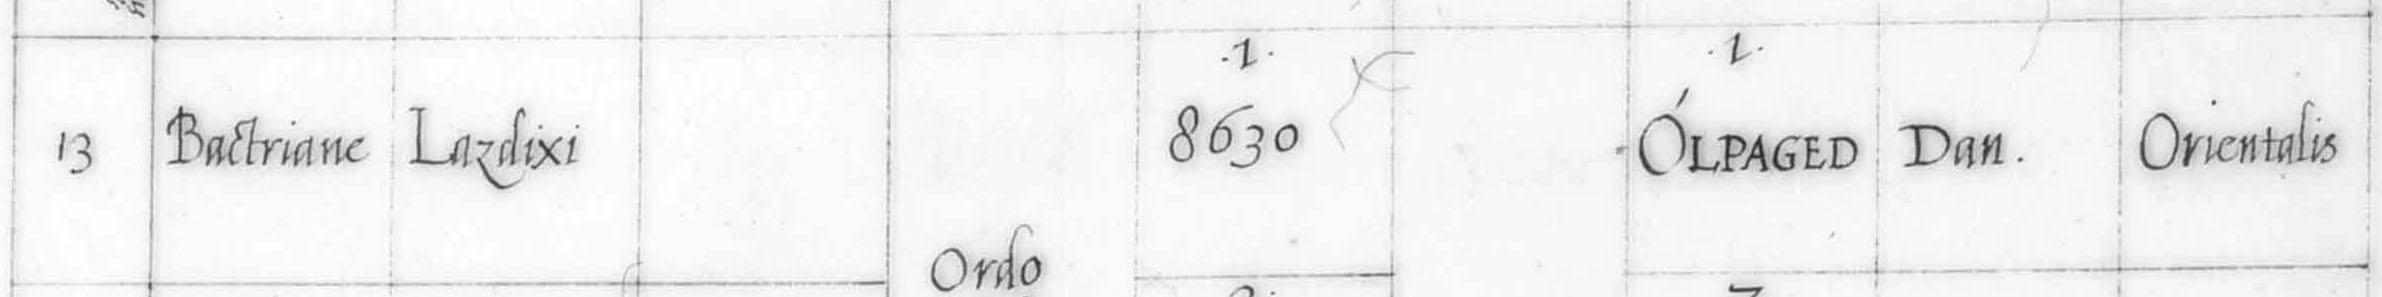 .1. .1.
13 Bactriane Lazdixi 8630 ÓLPAGED Dan. Orientalis
Ordo